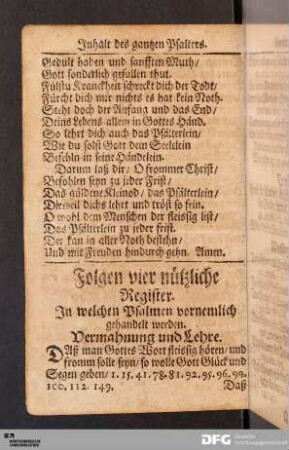 Inhalt des gantzen Psalters.
Gedult haben und sanfften Muth/
Gott sonderlich gefallen thut.
Fühlstu Kranckheit schreckt dich der Todt/
Fürcht dich nur nichts es hat kein Noth.
Steht doch der Anfang und das End/
Deins Lebens allein in Gottes Händ.
So lehrt dich auch das Psälterlein/
Wie du solst Gott dem Seelelein
Befehln in seine Händelein.
Darum laß dir/ O frommer Christ/
Befohlen seyn zu jeder Frist/
Das güldene Kleinod/ das Psälterlein/
Dieweil dichs lehrt und tröst so fein.
O wohl dem Menschen der fleissig list/
Das Psälterlein zu jeder frist.
Der kan in aller Noth bestehn/
Und mit Freuden hindurch gehn. Amen.
Folgen vier nützliche
Register.
In welchen Psalmen vornemlich
gehandelt werden.
Vermahnung und Lehre.
DAß man Gottes Wort fleissig hören/ und
fromm solle seyn/ so wolle Gott Glück und
Segen geben/ 1. 15. 41. 78. 81. 92. 95. 96. 99.
100. 112. 149.
Daß
DFG Deutsche
Forschungsgemeinschaft